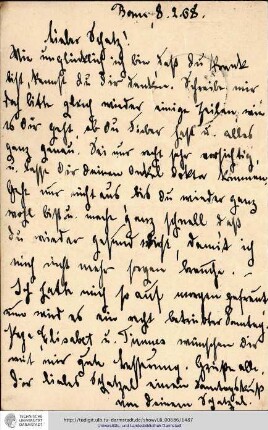 Bonn, 8.2.08.
Lieber Schatz!
Wie unglücklich ich bin daß du krank
bist, kannst du dir denken. Schreibe mir
doch bitte gleich wieder einige Zeilen, wie
es dir geht, ob du Fieber hast u. alles
ganz genau. Sei nur recht sehr vorsichtig,
u. lasse dir deinen Onkel Doktor kommen.
Gehe nur nicht aus bis du wieder ganz
wohl bist u. mach ganz schnell daß
du wieder gesund wirst, damit ich
mich nicht mehr sorgen brauche.
Ich hatte mich so auf morgen gefreut
und wird es ein recht betrübter Sonntag.
Elisabet u. wünschen dir
mit mir gute Besserung. Grüße alle.
Dir liebes Schatzel einen Sonntagskuß
von deinem Schatzel.
TECHNISCHE UNIVERSITÄT DARMSTADT
Universitäts- und Landesbibliothek Darmstadt